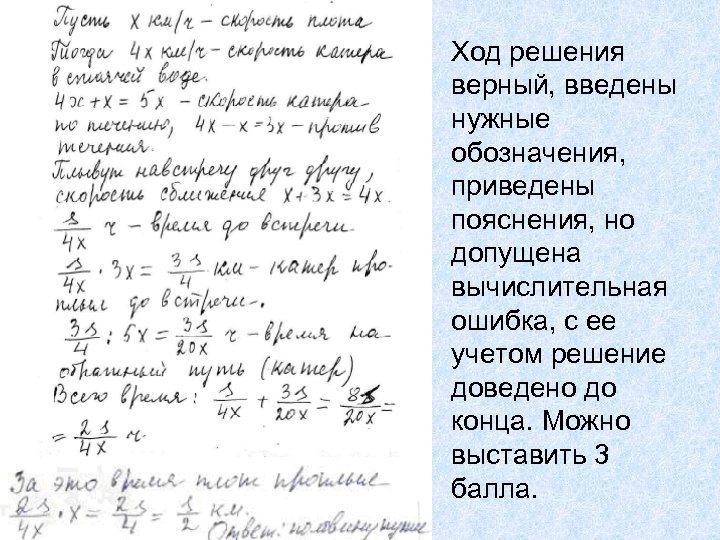 Пусть x км/ч - скорость плота
Тогда 4x км/ч - скорость катера
в стоячей воде.
4x+x = 5x - скорость катера
по течению, 4x-x=3x - против
течения.
Плывут навстречу друг другу,
скорость сближения x+3x=4x.
s/4x ч - время до встречи.
s/4x · 3x = 3s/4 км - катер про-
плыл до встречи.
3s/4 : 5x = 3s/20x ч - время на
обратный путь (катер)
Всего время: s/4x + 3s/20x = 8s/20x =
= 2s/4x ч.
За это время плот проплыл
2s/4x · x = 2s/4 = s/2 км.
Ответ: половину пути
Ход решения
верный, введены
нужные
обозначения,
приведены
пояснения, но
допущена
вычислительная
ошибка, с ее
учетом решение
доведено до
конца. Можно
выставить 3
балла.